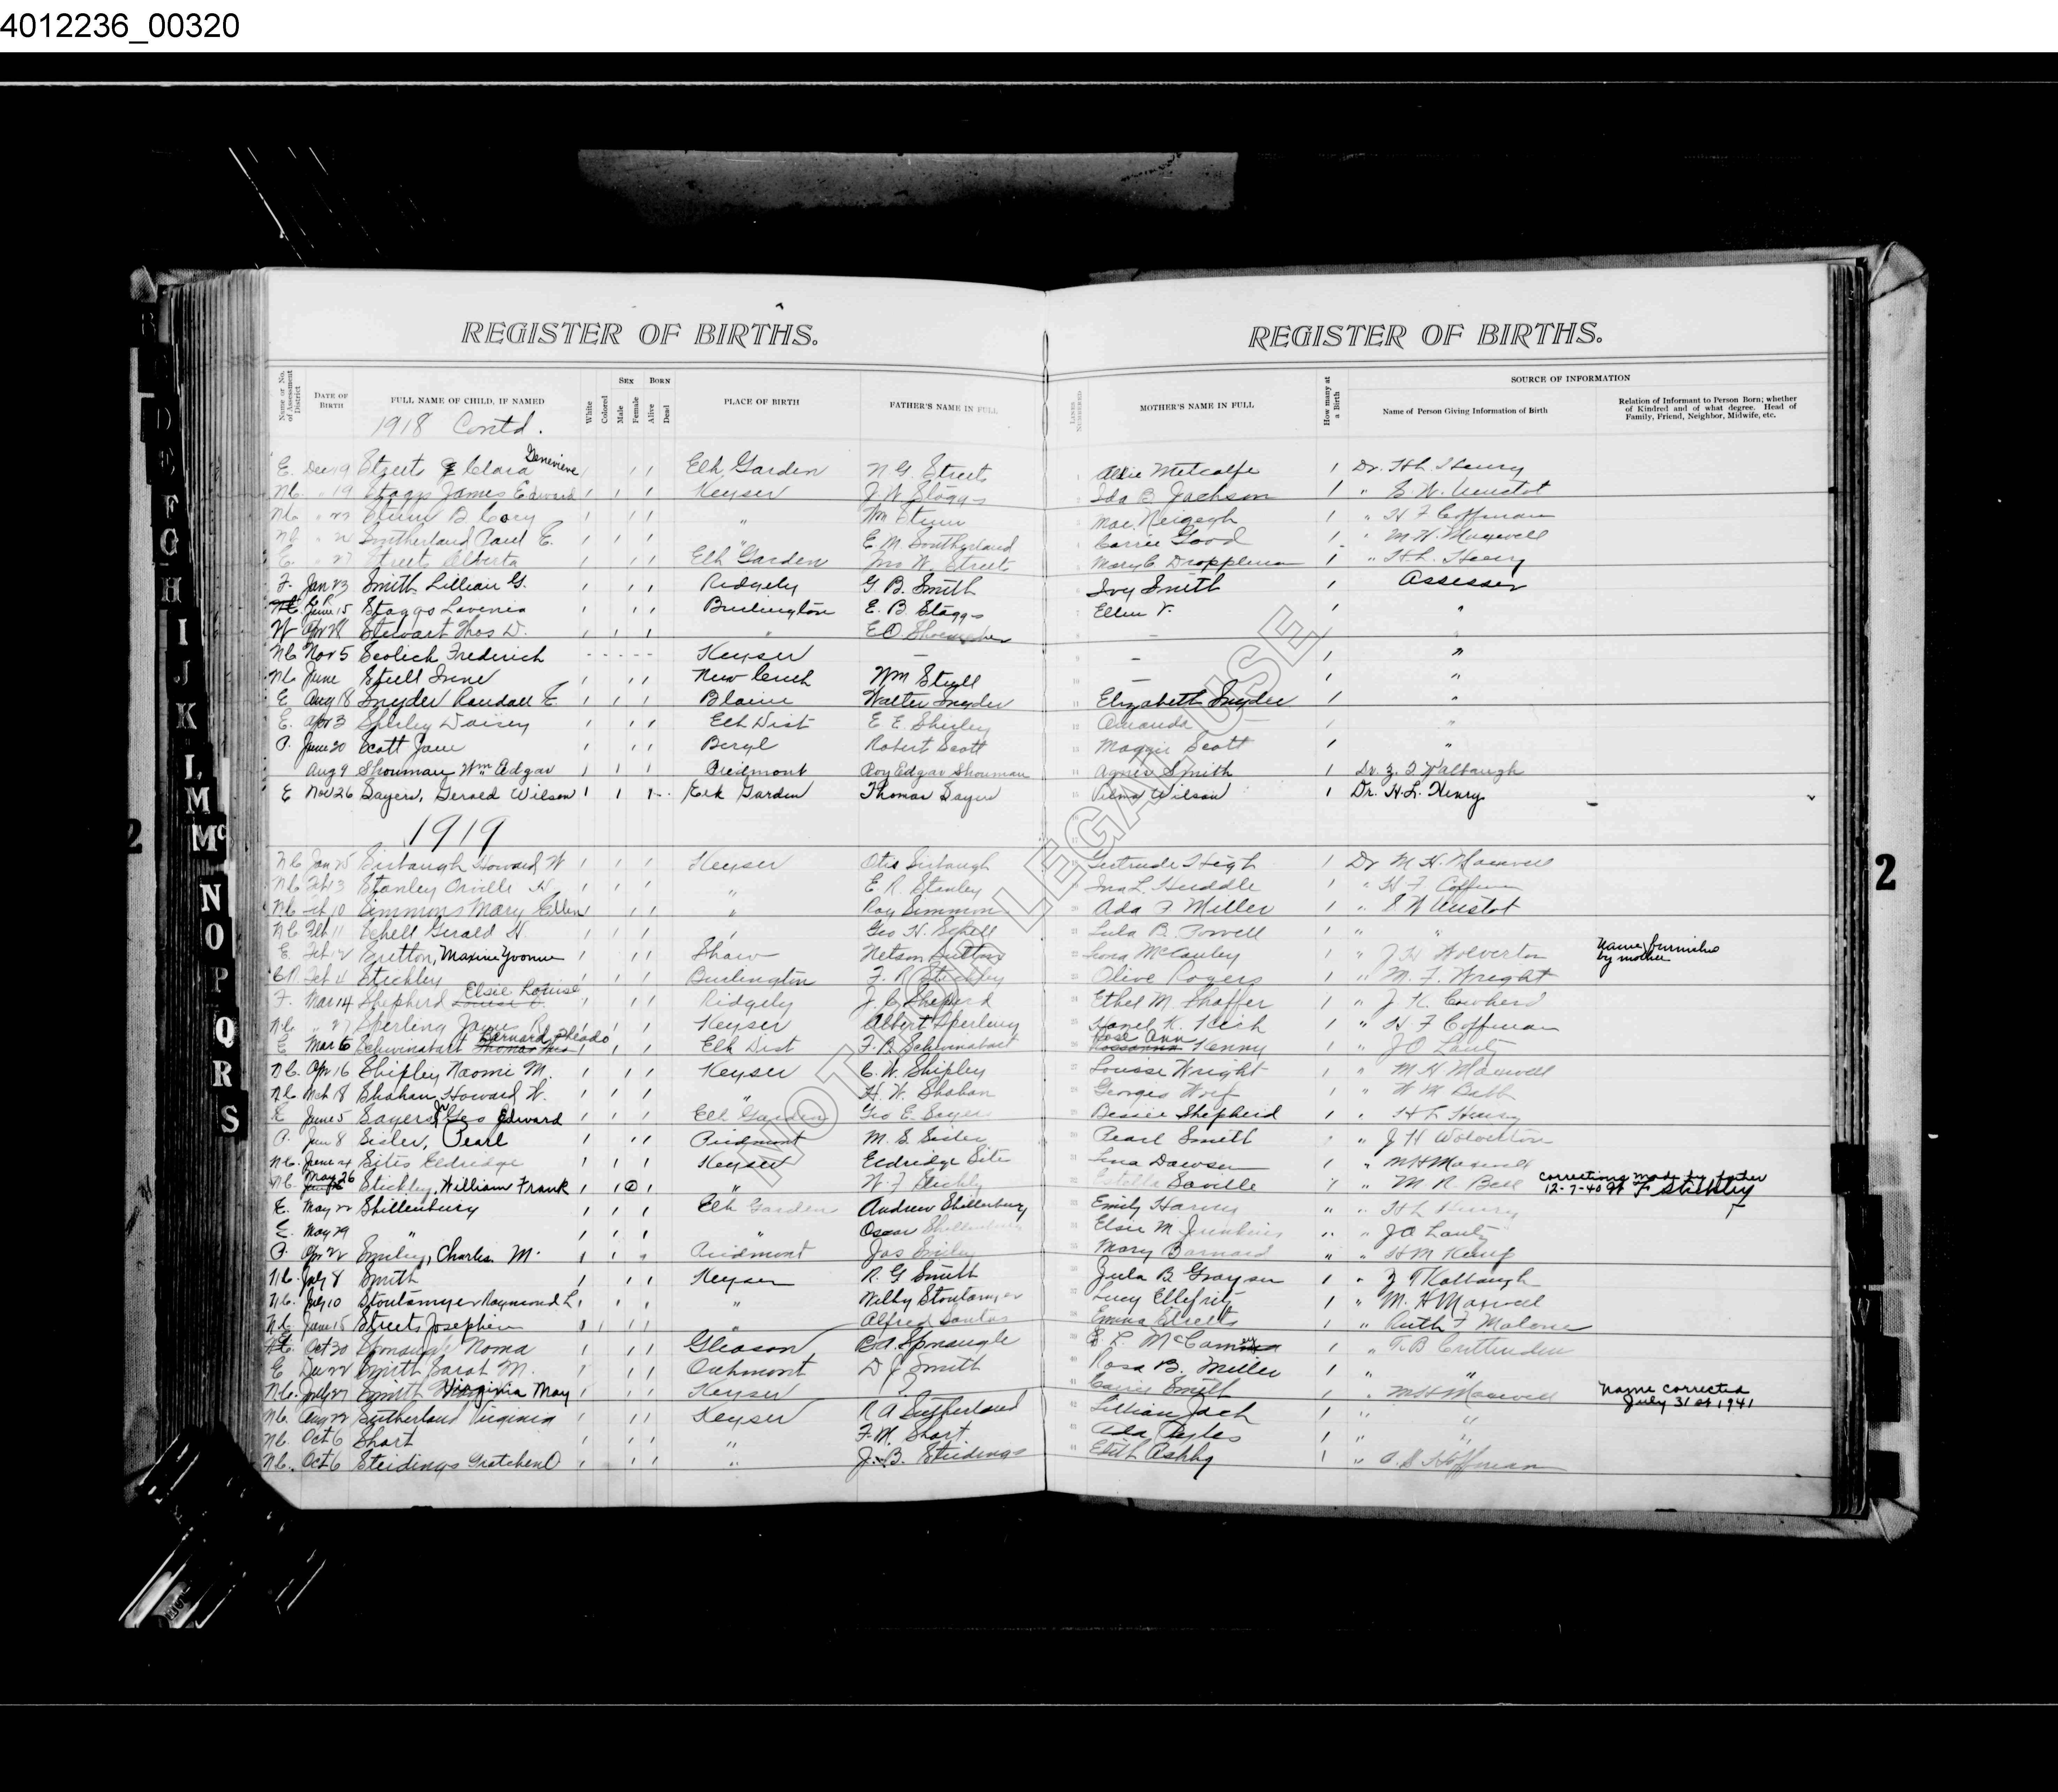 4012236_00320
REGISTER OF BIRTHS. REGISTER OF BIRTHS.
Name or No. of Assessment District DATE OF BIRTH FULL NAME OF CHILD, IF NAMED White Colored SEX Male Female BORN Alive Dead PLACE OF BIRTH FATHER'S NAME IN FULL LINES NUMBERED MOTHER'S NAME IN FULL How many at a Birth SOURCE OF INFORMATION Name of Person Giving Information of Birth Relation of Informant to Person Born; whether of Kindred and of what degree. Head of Family, Friend, Neighbor, Midwife, etc.
1918 Contd.
E. Dec 19 Streets Clara Genevieve Elk Garden N G. Streets 1 Allie Metcalfe 1 Dr. H L. Henry
N C. " 19 Staggs James Edward Keyser J. W. Staggs 2 Ida B Jackson 1 "
" B Cory " Wm 3 Mae 1 " H F Coffman
Southerland Paul E. " E. M. Southerland 4 Carrie Good 1 " M H. Maxwell
E. " 27 Streets Alberta Elk Garden Jno W. Streets 5 Mary C 1 " H L. Henry
F. Jan 23 Smith Lillian G. Ridgely G B. Smith 6 Ivy Smith 1 Assessor
June 15 Staggs Lavenia Burlington E. B. Staggs 7 Ellen V. 1 "
Stewart Thos D. " E O. 8 - 1 "
N C Nov 5 Frederick - - - - - Keyser - 9 - 1 "
N C June Irene New Creek Wm 10 - 1 "
E Aug 18 Snyder Randall E. Blaine Walter Snyder 11 Elizabeth Snyder 1 "
E. Apr 3 Daisey Elk Dist E E. 12 Amanda 1 "
P. June 20 Scott Jane Beryl Robert Scott 13 Maggie Scott 1 "
Aug 9 Showman Wm Edgar Piedmont Roy Edgar Showman 14 Agnes Smith 1 Dr. Z. T Kalbaugh
E Nov 26 Sayers, Gerald Wilson Elk Garden Thomas Sayers 15 Wilson 1 Dr. H. L. Henry
1919
N C Jan 25 Sirbaugh Howard W Keyser Otis Sirbaugh Gertrude High 1 Dr M H. Maxwell
N C Feb 3 Stanley Orville H " E. R. Stanley Ina L. Huddle 1 " H F Coffman
N C Feb 10 Simmons Mary Ellen " Ray Simmons 20 Ada F Miller 1 "
N C Feb 11 Schell Gerald H. " Geo H. Schell 21 Lula B. Powell 1 " "
E. Feb 12 Sutton, Maxine Yvonne Shaw Nelson Sutton 22 McCauley 1 " J H Wolverton Name furnished by mother
Feb 4 Stickley Burlington F. R. Stickley 23 Olive Rogers 1 " M. F. Wright
F. Mar 14 Shepherd Elsie Louise Ridgely J. C. Sheperd 24 Ethel M. Shaffer 1 " J K. Cowherd
N C " 27 Sperling James R. Keyser Albert Sperling 25 Hazel K. 1 " H F Coffman
E Mar 6 Schwinabart Bernard Elk Dist F. B. Schwinabart 26 Rose Ann Kenny 1 " J O Lantz
N C. Apr 16 Shipley Naomi M. Keyser C. W. Shipley 27 Louise Wright 1 " M H. Maxwell
N C Mch 18 Shahan Howard W. " H. W. Shahan 28 Georgia 1 " W M Babb
E June 5 Sayers Jr Geo Edward Elk Garden Geo E. Sayers 29 Bessie Shepherd 1 " H L Henry
P. Jan 8 Sisler, Pearl Piedmont M. S. Sisler 30 Pearl Smith " J H Wolverton
N C. June 4 Sites Eldridge Keyser Eldridge Sites 31 Lena Dawson 1 " M H Maxwell
N C. May 26 Stickley, William Frank " W. F Stickly 32 Estella Saville " M R. Bell Corrections made by father 12-7-40 W F Stickley
E. May 22 Shillenburg Elk Garden Andrew Shillenburg 33 Emily Harvey " " H L Henry
E. May 29 " " Oscar Shillenburg 34 Elsie M. Junkins " " J O Lantz
P. Apr 22 Smiley, Charles M. Piedmont Jas Smiley 35 Mary Barnard " " H M
N C. July 8 Smith Keyser R. G Smith 36 Zula B. Grayson 1 " Z T Kalbaugh
N C. July 10 Stoutamyer Raymond L. " Wilby Stoutamyer 37 Lucy Ellifritz 1 " M. H Maxwell
N C June 15 Streets Josephine " Alfred Santos 38 Emma Streets 1 " Ruth F Malone
Oct 30 Sponaugle Noma Gleason C A. Sponaugle 39 E. L. 1 " T. B Crittenden
E Dec 22 Smith Sarah M. Oakmont D J. Smith 40 Rosa B. Miller 1 " "
N C. July 27 Smith Virginia May Keyser 41 Carrie Smith 1 " M H Maxwell Name corrected July 31 1941
N C. Aug 22 Sutherland Virginia Keyser R A Sutherland 42 Lillian Jack 1 " "
N C. Oct 6 Short " F. M. Short 43 Ada 1 " "
N C. Oct 6 Steidings Gretchen O " J. B. Steidings 44 Edith Ashby 1 "
NOT FOR LEGAL USE
D E F G H I J K L M Mc N O P Q R S
2 2